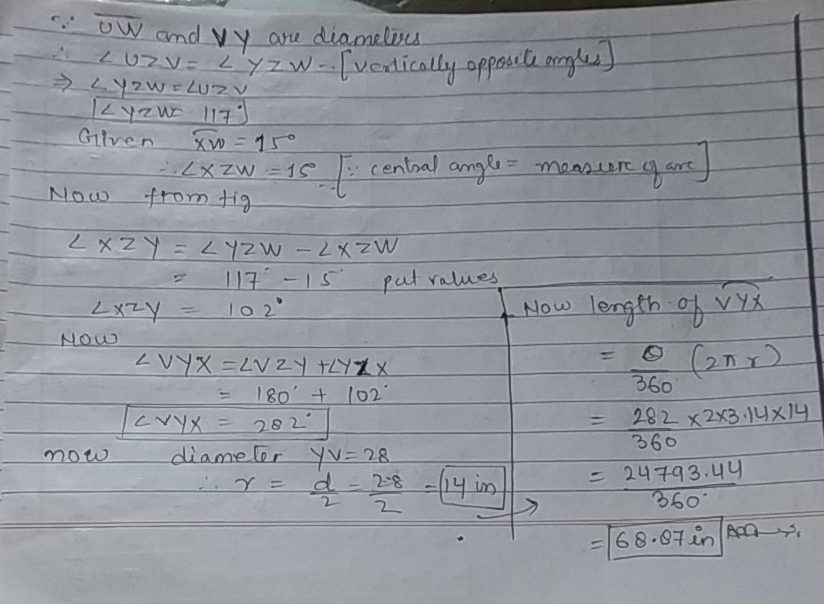 ∵ UW and VY are diameters
∴ ∠UZV = ∠YZW - [vertically opposite angles]
⇒ ∠YZW = ∠UZV
∠YZW = 117°
Given XW = 15°
∴ ∠XZW = 15° [∵ central angle = measure of arc]
Now from fig
∠XZY = ∠YZW - ∠XZW
= 117° - 15° put values
∠XZY = 102°
Now
∠VYX = ∠VZY + ∠YZX
= 180° + 102°
∠VYX = 282°
now diameter YV = 28
∴ r = d/2 = 28/2 = 14 in
Now length of VYX
= θ/360 (2πr)
= 282/360 × 2×3.14×14
= 24793.44/360
= 68.87 in